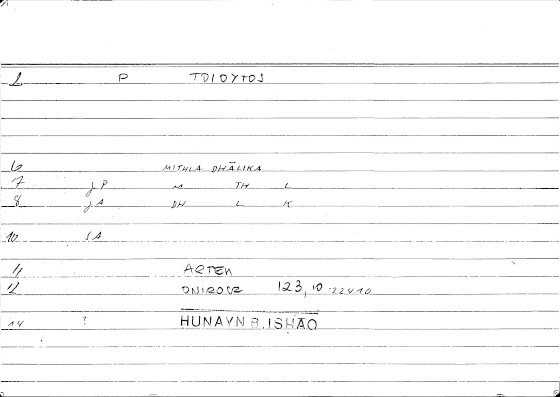 1 P TOIOYTOS
6 MITHLA DHĀLIKA
7 jP M TH L
8 jA DH L K
10 SA
11 ARTEM
12 ONIROCR 123,10 :224 10
14 ? HUNAYN B. ISHAQ